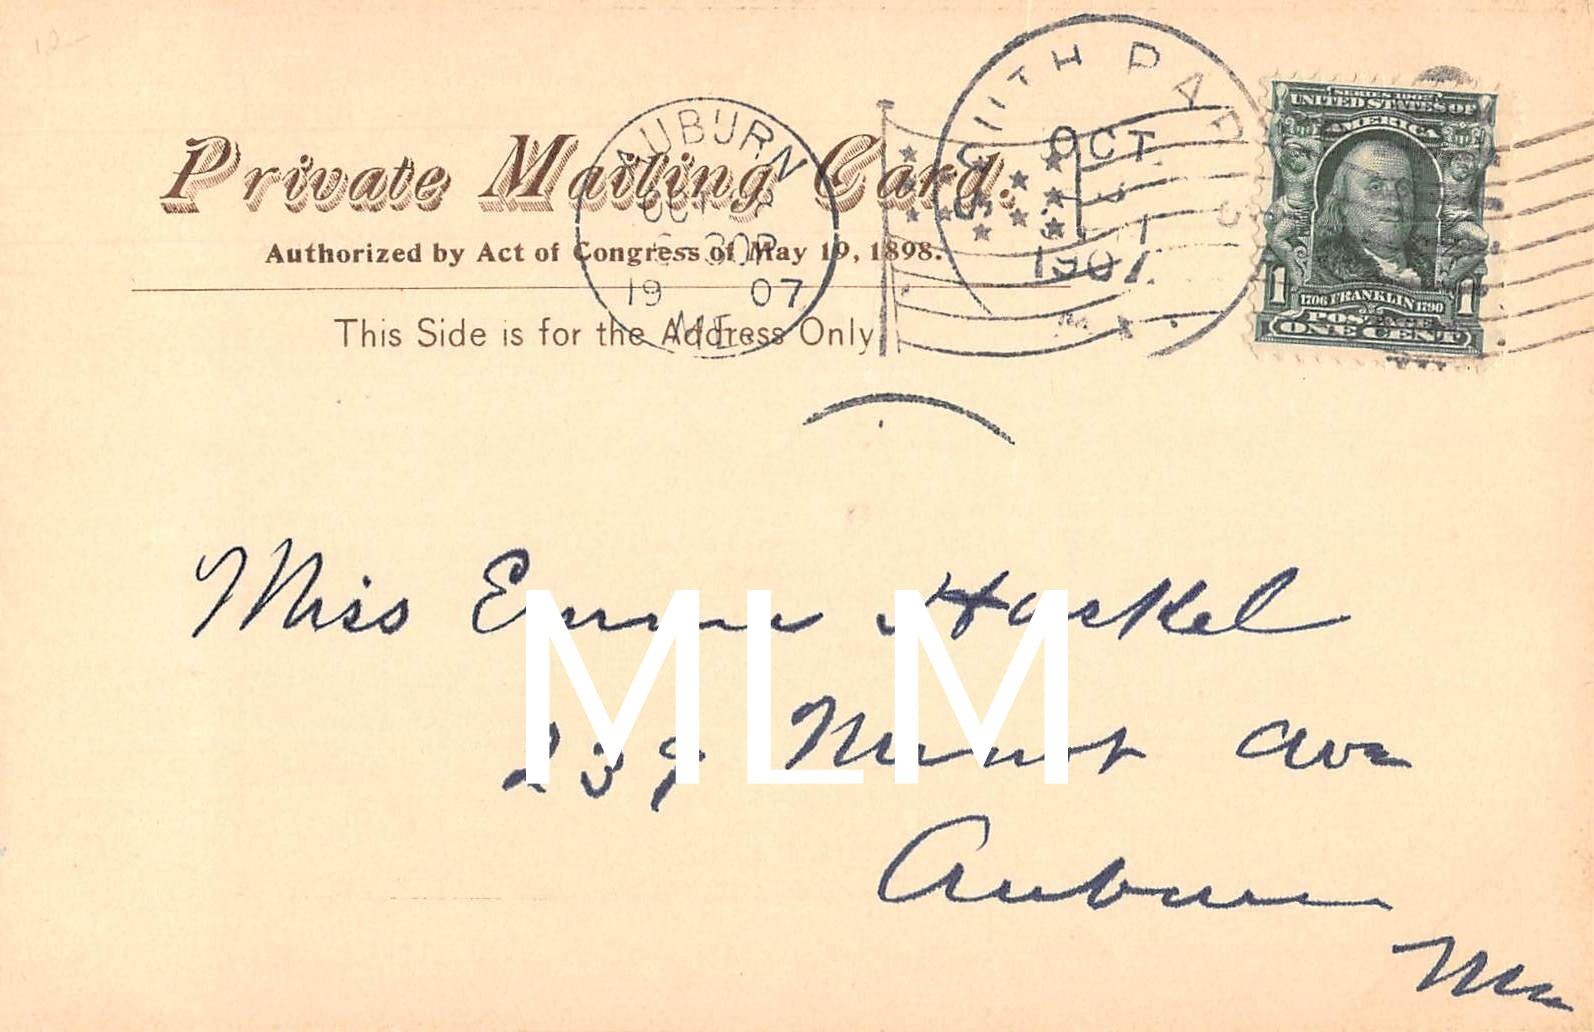 12-
Private Mailing Card.
Authorized by Act of Congress of May 19, 1898.
This Side is for the Address Only
AUBURN
OCT
30P
19 07
ME.
SOUTH PARIS
OCT
1907
SERIES 1902
UNITED STATES OF
AMERICA
1 1706 FRANKLIN 1790 1
POSTAGE
ONE CENT
Miss Emma Haskel
239 Minot Ave
Auburn
Me
MLM